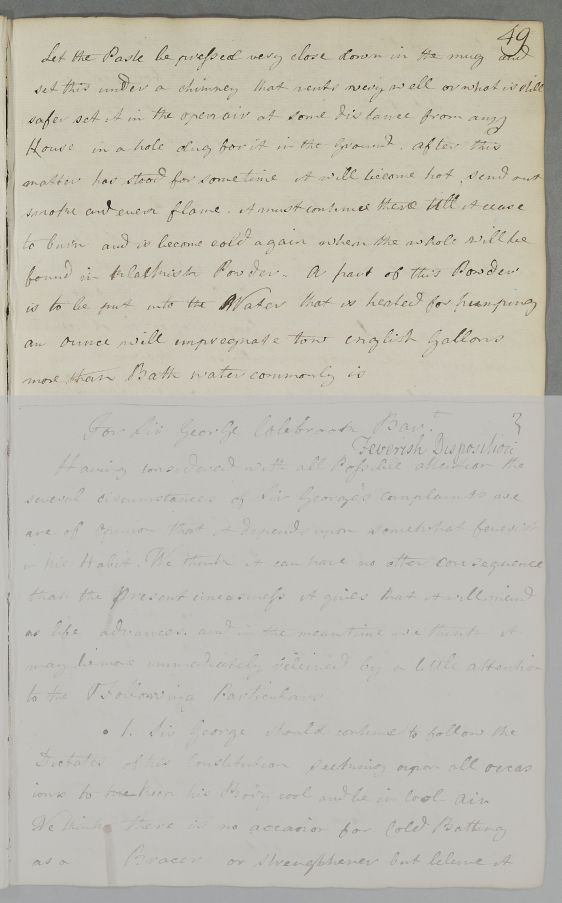 49
Let the Paste be pressed very close down in the mug and
set this under a chimney that vents very well or what is still
safer set it in the open air at some distance from any
House in a hole dug for it in the Ground. After this
matter has stood for some time it will become hot, send out
smoke and even flame. it must continue there till it cease
to burn and is become cold again when the whole will be
found in Powder. A part of this Powder
is to be put into the Water that is heated for pumping
an ounce will impregnate tow english Gallons
more than Bath water commonly is
For Sir George Colebrook Bart.
Feverish Disposition
Having considered with all Possible attention the
several circumstances of Sir George's complaints we
are of opinion that it depends upon somewhat feverish
in his Habit. We think it can have no other consequence
than the Present uneasiness it gives that it will mend
as life advances. and in the meantime we think it
may be more immediately relieved by a little attention
to the Following Particulars
1. Sir George should continue to follow the
Dictates of his Constitution seeking upon all occas
ions to keep his Body cool and be in cool air
We think there is no occasion for Cold Bathing
as a Bracer or strengthener but believe it